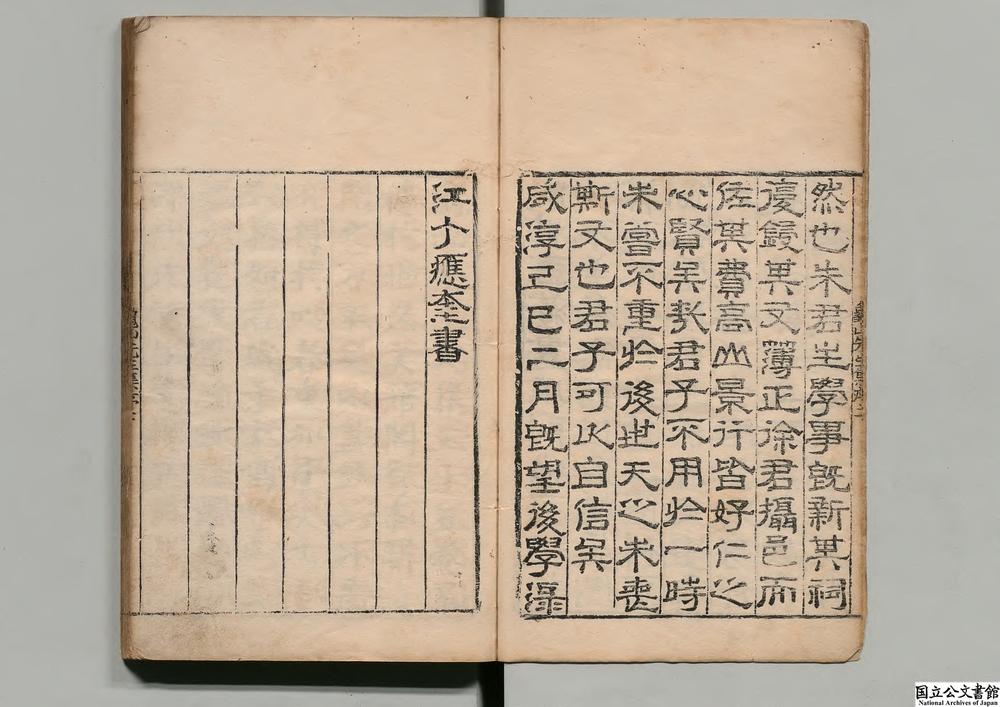 然也朱君主學事既新其祠
復鋟其文簿正徐君攝邑而
佐其費高山景行皆好仁之
心賢矣哉君子不用於一時
未嘗不重於後世天之未喪
斯文也君子可以自信矣
咸淳己巳二月既望後學
江丁應奎書
国立公文書館
National Archives of Japan